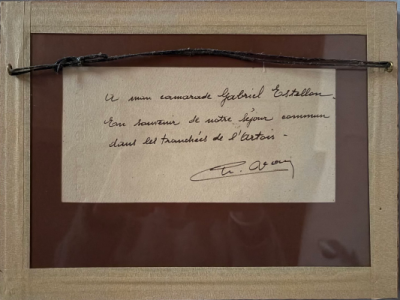 A mon camarade Gabriel Estellon.
En souvenir de notre séjour commun
dans les tranchées de l'Artois -